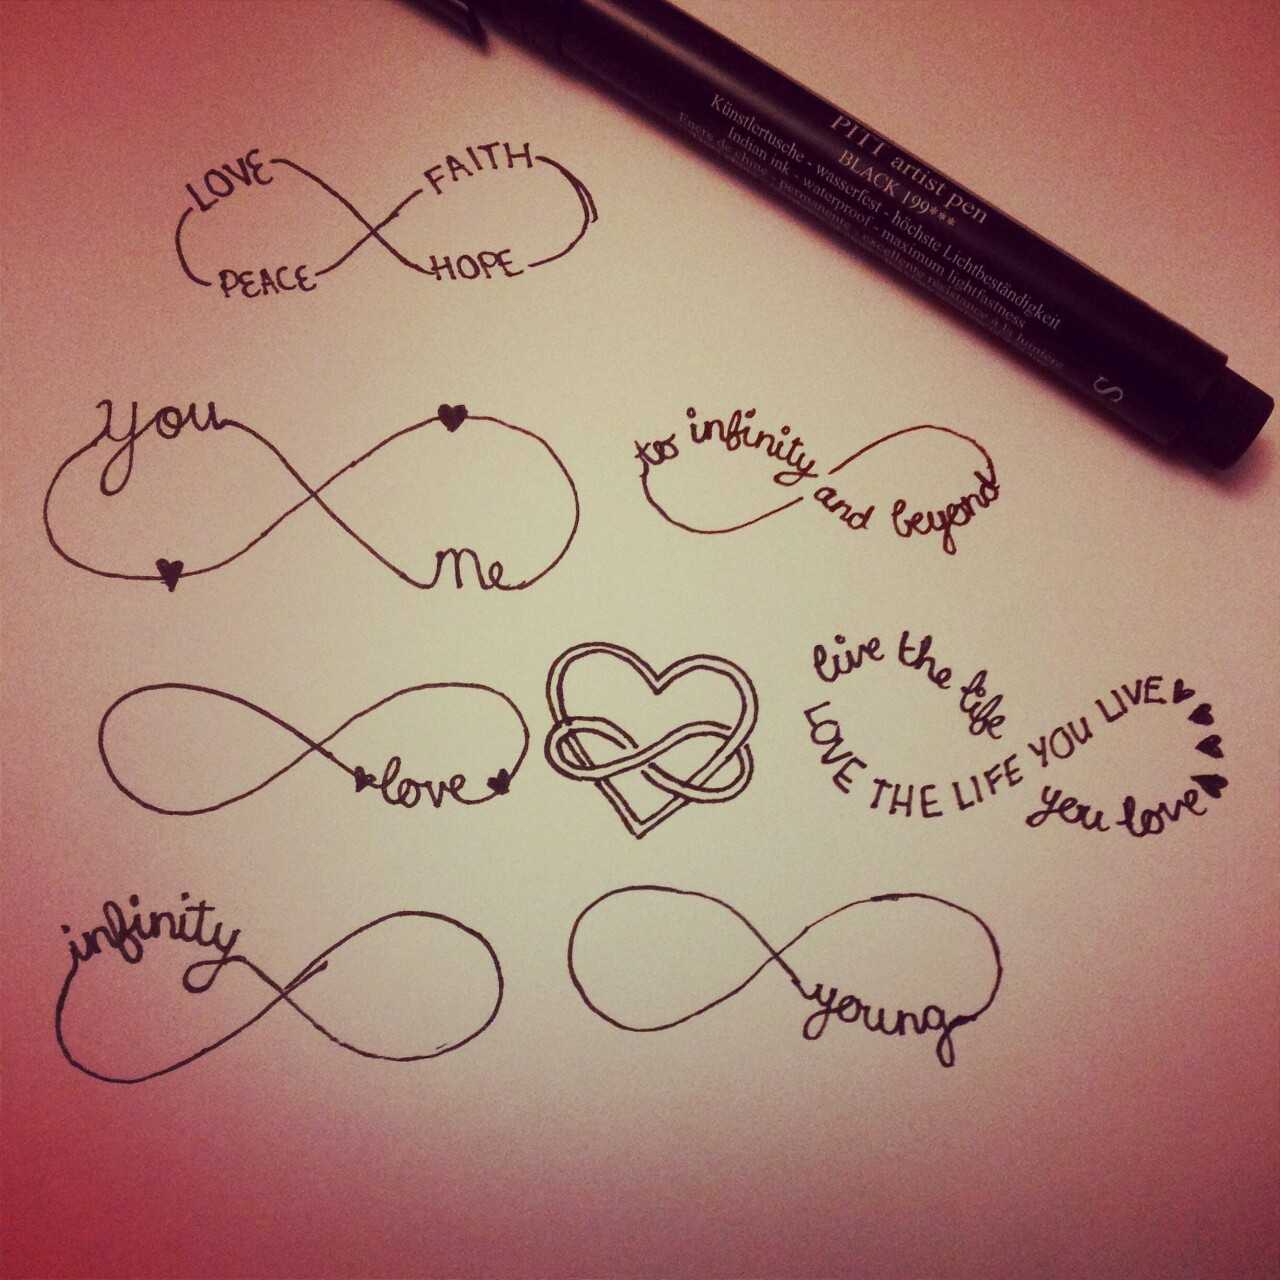 PITT artist pen
BLACK 199***
Künstlertusche - wasserfest - höchste Lichtbeständigkeit
Indian ink - waterproof - maximum lightfastness
Encre de chine - permanente - excellente résistance à la lumière
S
LOVE FAITH
PEACE HOPE
You
Me
to infinity
and beyond
love
live the life
you love
LOVE THE LIFE YOU LIVE
infinity
young